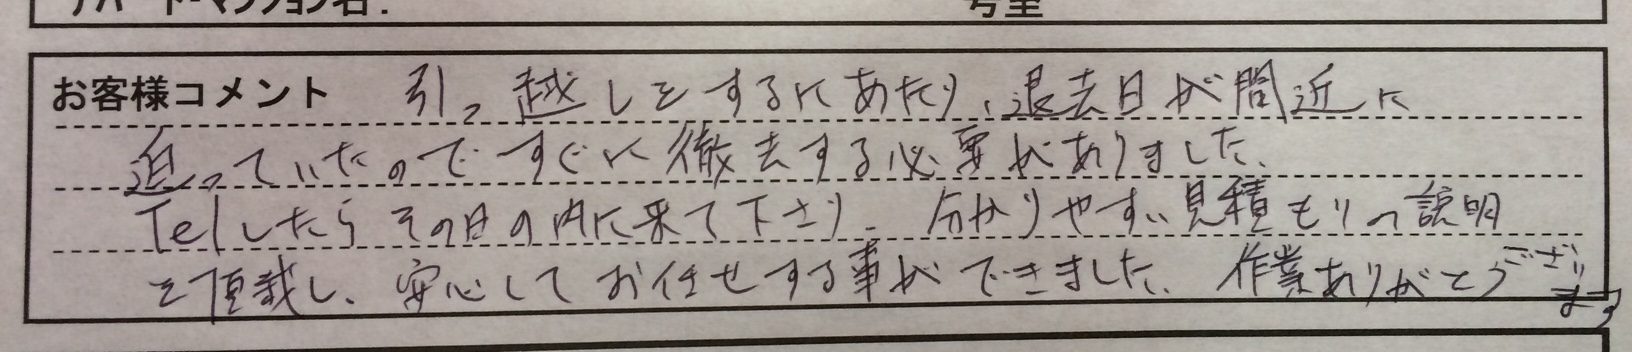 アパート・マンション名：　　号室
お客様コメント 引っ越しをするにあたり、退去日が間近に
迫っていたのですぐに撤去する必要がありました。
Telしたらその日の内に来て下さり、分かりやすい見積もりの説明
を頂戴し、安心してお任せする事ができました。作業ありがとうございます